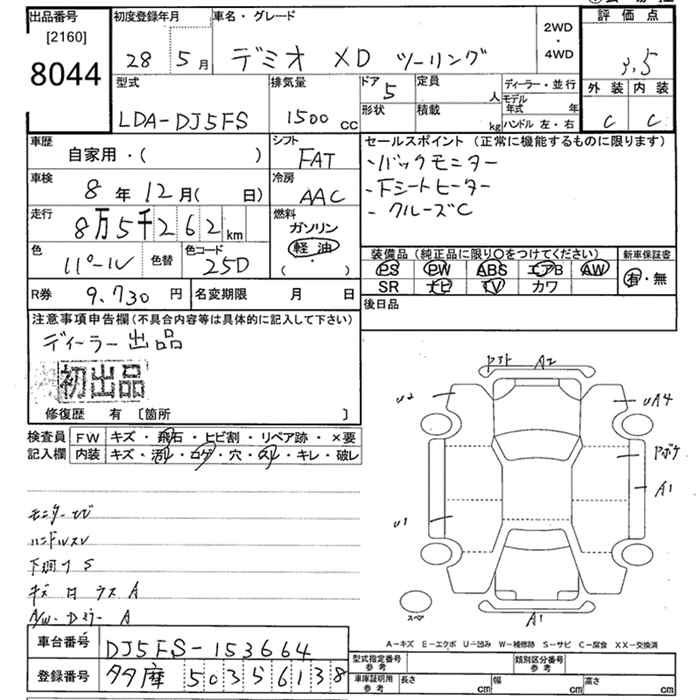 出品番号 初度登録年月 車名・グレード 2WD・4WD 評価点
[2160]
8044 28 5月 デミオ XD ツーリング 3.5
型式 排気量 ドア 定員 人 ディーラー・並行 外装 内装
LDA-DJ5FS 1500cc 5 モデル年式 年 C C
形状 積載 kg ハンドル 左・右
車歴 自家用・( ) シフト FAT セールスポイント (正常に機能するものに限ります)
・バックモニター
車検 8年12月( 日) 冷房 AAC ・Fシートヒーター
・クルーズC
走行 8万5千262km 燃料 ガソリン・軽油 ( )
色 パール 色替 色コード 25D
装備品 (純正品に限り○をつけてください) 新車保証書
PS PW ABS エアB AW 有・無
SR ナビ TV カワ
R券 9,730円 名変期限 月 日 後日品
注意事項申告欄 (不具合内容等は具体的に記入して下さい)
ディーラー出品
初出品
修復歴 有 〔箇所 〕
検査員 FW キズ・飛石・ヒビ割・リペア跡・×要
記入欄 内装 キズ・汚レ・コゲ・穴・スレ・キレ・破レ
A2
U2 UA4
A1
U1
ハンドルスレ
下廻リS
スペア A1
A-キズ E-エクボ U-凹み W-補修跡 S-サビ C-腐食 XX-交換済
車台番号 DJ5FS-153664
登録番号 多摩 503 5 6138
型式指定番号 参考 類別区分番号 参考
車庫証明用 参考 長さ cm 幅 cm 高さ cm